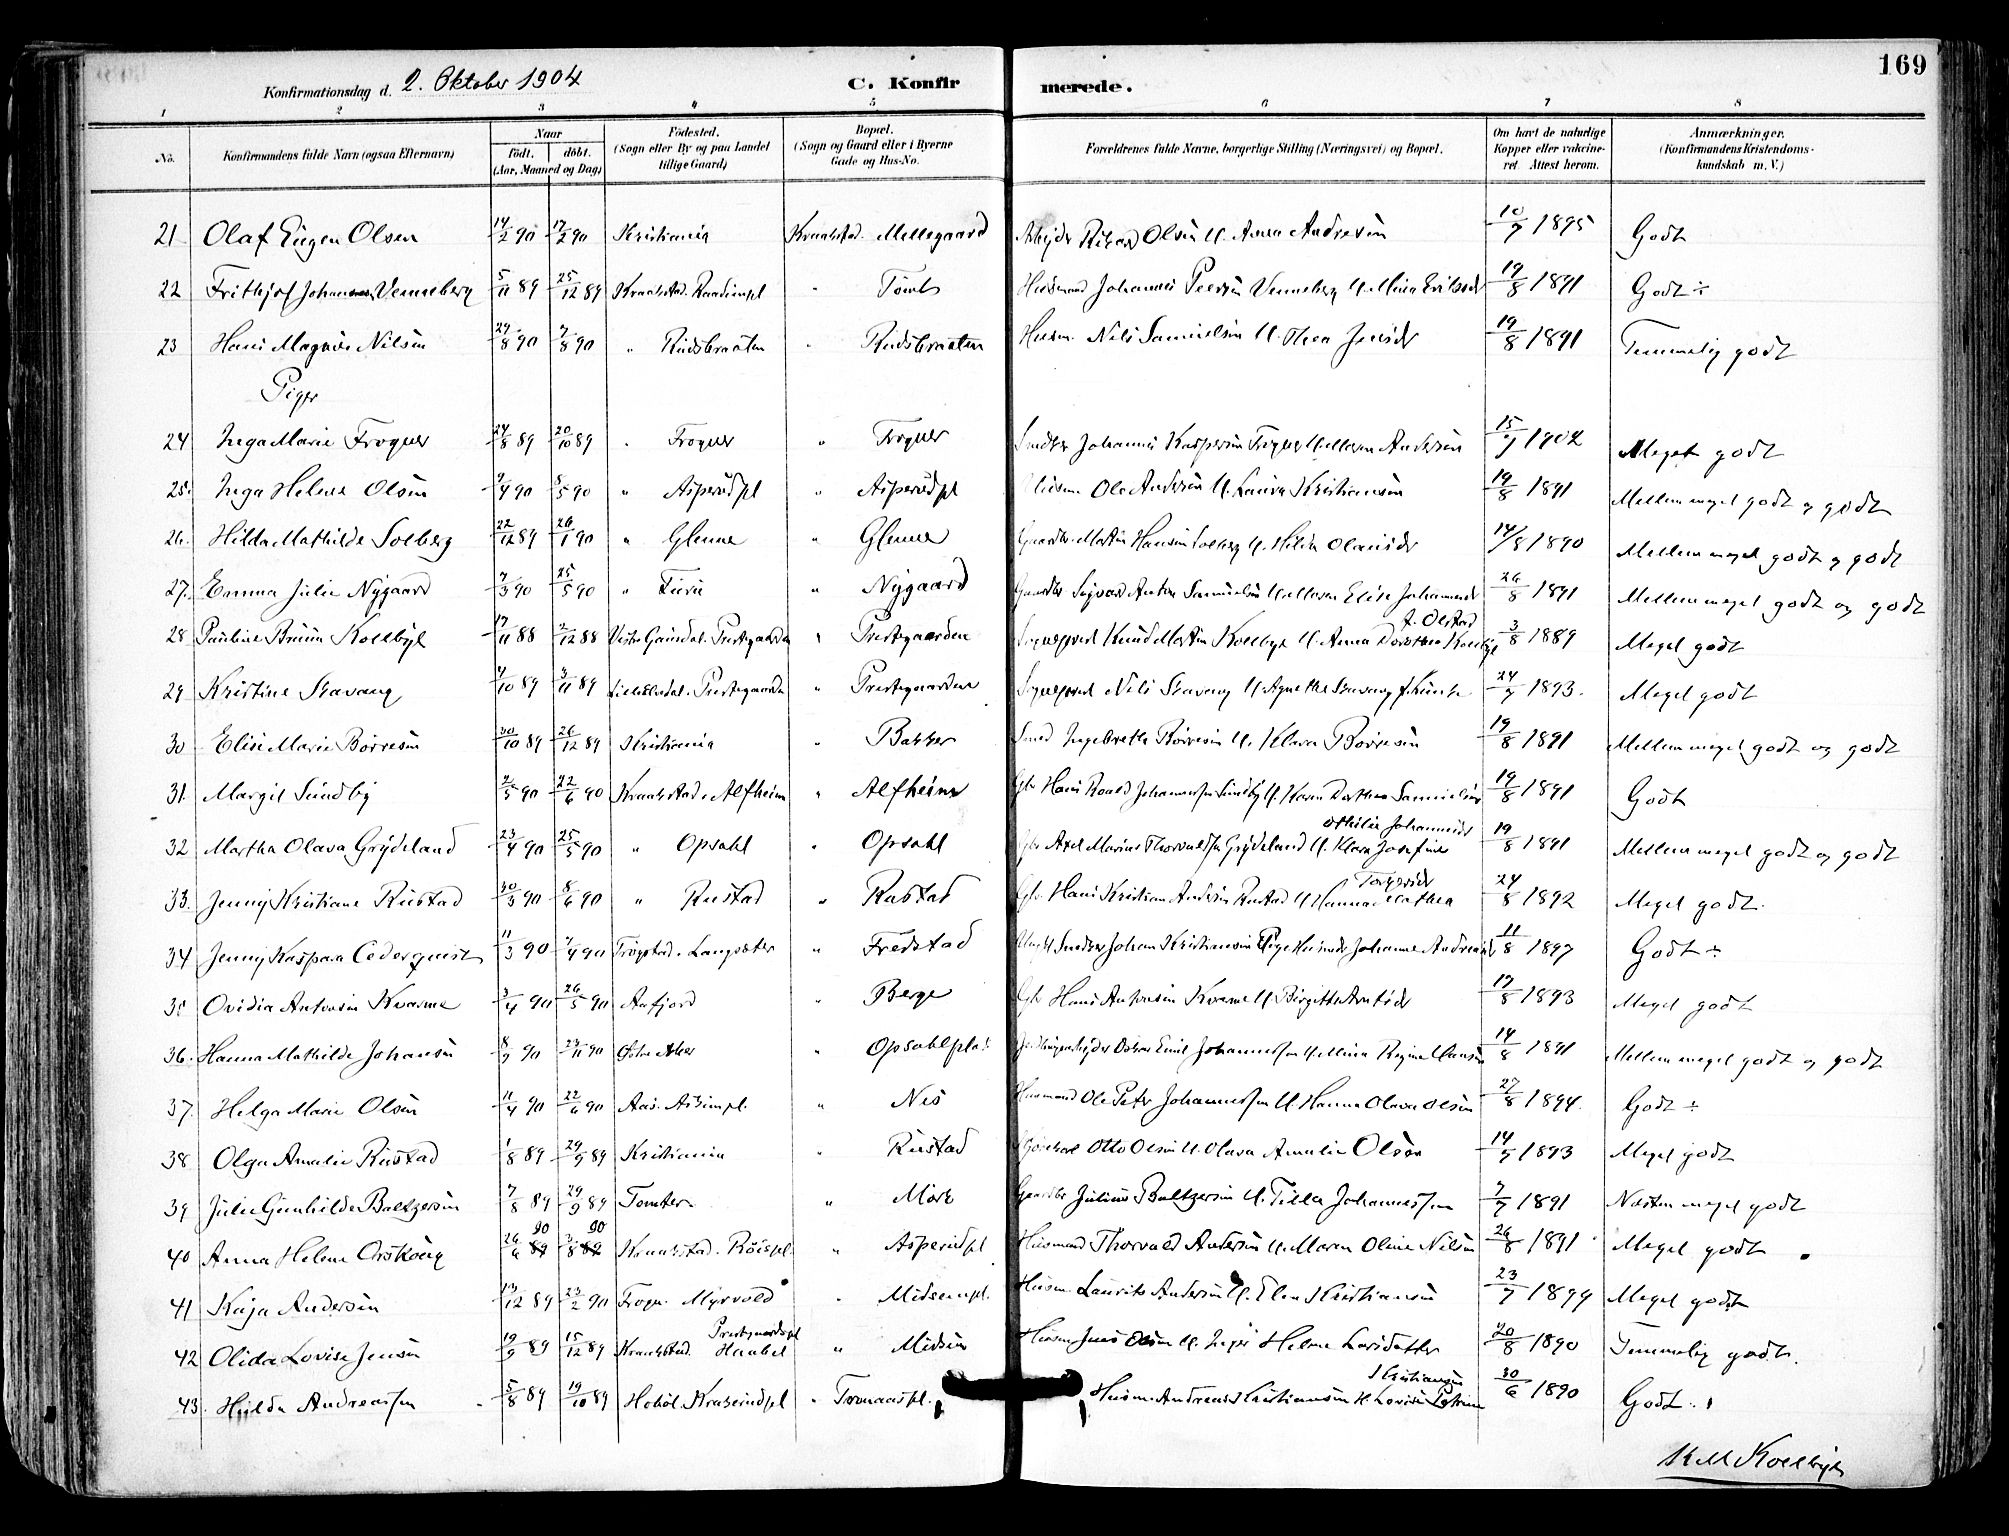 169
Konfirmationsdag d. 2. Oktober 1904 C. Konfirmerede.
1 2 3 4 5 6 7 8
No. Konfirmandens fulde Navn (ogsaa Efternavn) Naar Født. døbt. (Aar, Maaned og Dag) Fødested. (Sogn eller By og paa Landet tillige Gaard) Bopæl. (Sogn og Gaard eller i Byerne Gade og Hus-No. Forældrenes fulde Navne, borgerlige Stilling (Næringsvei) og Bopæl. Om havt de naturlige Kopper eller vakcineret. Attest herom. Anmærkninger. (Konfirmandens Kristendomskundskab m. V.)
21 Olaf Eugen Olsen 14/2 90 17/2 90 Kristiania Kraakstad Mellegaard Rikard Olsen & Anna Andresen 10/7 1895 Godt
22 Frithjof Johannes Venneberg 5/11 89 25/12 89 Kraakstad " Tomb Husmand Johannes Venneberg & 19/8 1891 Godt ÷
23 Hans Magnus Nilsen 29/8 90 7/8 90 " Rudsbraaten " Rudsbraaten Husm. Nils Samuelsen & Thea 19/8 1891 Temmelig godt
Piger
24 Inga Marie Frogner 24/8 89 20/10 89 " Frogner " Frogner Johannes Kaspersen Andersen 15/7 1902 Meget godt
25. Inga Helene Olsen 9/4 90 5/5 90 " Asperudpl " Asperudpl Husm. Ole Andersen & Laura Kristiansen 19/8 1891 Mellem meget godt og godt
26. Hilda Mathilde Solberg 22/12 89 26/1 90 " Glenne " Glenne Martin Hansen Solberg & Hilda 14/8 1890 Mellem meget godt og godt
27. Emma Julie Nygaard 7/3 90 25/5 90 " " Nygaard Sigvard Anton Samuelsen & Maren Elise 26/8 1891 Mellem meget godt og godt
28 Pauline Bruun Kollbye 17/11 88 2/12 88 Prestegaarden " Prestegaarden Sogneprest Knud Martin Kollbye & Anna Dorothea f. Olstad 3/8 1889 Meget godt
29 Kristine Stavang 4/10 89 3/11 89 Prestegaarden " Prestegaarden Nils Stavang & Agnethe Stavang 24/7 1893. Meget godt
30 Elise Marie Børresen 30/10 89 26/12 89 Kristiania " Bakker Smed Ingebreth Børresen & Klara Børresen 19/8 1891 Mellem meget godt og godt
31. Margit Sundby 2/5 90 22/6 90 Kraakstad. Alfheim " Alfheim Hans Roald Johannessen Sundby & Karen Dorthea Samuelsen 19/8 1891 Godt
32 Martha Olava Grydeland 23/4 90 25/5 90 " Opsahl " Opsahl Axel Marius Thorvaldsen Grydeland & Klara Josefine Othilie 19/8 1891 Mellem meget godt og godt
33. Jenny Kristiane Rustad 30/3 90 8/6 90 " Rustad " Rustad Hans Kristian Andersen Rustad & Hanna Mathea 24/8 1892 Meget godt.
34 Jenny Kaspara Cederquist 11/3 90 7/4 90 Trøgstad. Langsæter " Fredstad Johan Kristiansen & Pige Johanne 11/8 1897 Godt ÷
35 Ovidia Antonsen Kvarme 3/4 90 26/5 90 Aafjord " Berge Hans Antonsen Kvarme & Birgitte 17/8 1893 Meget godt
36. Hanna Mathilde Johansen 8/9 90 23/11 90 Østre Aker " Opsahlpla Oskar Emil Johannessen & Regine Hansen 14/8 1891 Mellem meget godt og godt
37. Helga Marie Olsen 11/4 90 22/6 90 Aas. " Nes Husmand Ole Peter Johannessen & Hanna Olava Olsen 27/8 1894. Godt ÷
38 Olga Amalie Rustad 1/8 89 29/9 89 Kristiania " Rustad Otto Olsen & Olava Amalie Olsen 14/5 1893 Meget godt
39 Julie Gunhilde Baltzersen 7/8 89 29/9 89 Tomter " Mork Gaardbr Julius Baltzersen & Tilla Johannessen 7/7 1891 Næsten meget godt
40 Anna Helene Orskoug 26/6 90 3/8 90 Kraakstad. " Asperudpl Husmand Thorvald Andersen & Maren Oline Nilsen 26/8 1891 Meget godt
41 Kaja Andersen 13/12 89 23/2 90 Frogn. Myrvold " Midsempl. Husm. Laurits Andersen & Elen Kristiansen 23/7 1899 Meget godt
42 Olida Lovise Jensen 19/9 89 15/12 89 Kraakstad. " Midsen Husm. Jens Olsen & Helene 20/8 1890 Temmelig godt.
43. Hulda Andreassen 5/8 89 19/10 89 Hobøl. " Husm. Andreas Kristiansen & Lovise Petrine Kristiansen 30/6 1890 Godt.
K M Kollbye